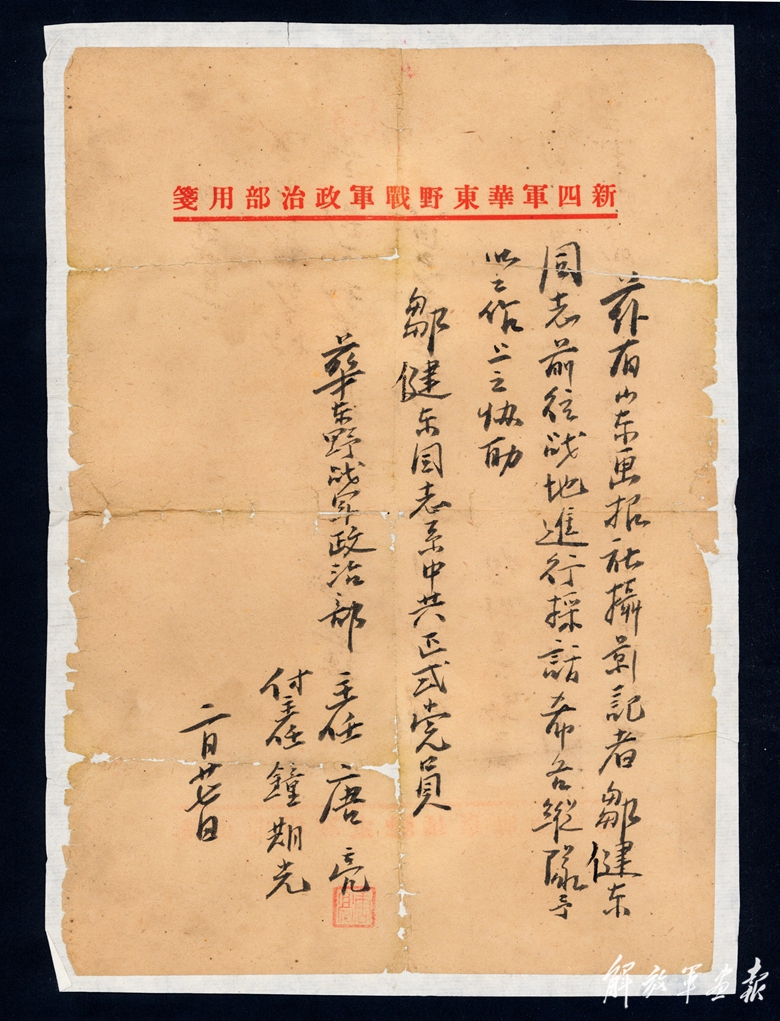 新四軍華東野戰軍政治部用箋
茲有山东画报社攝影記者鄒健东
同志前往战地進行採話希各縱隊予
以工作上之协助
鄒健东同志系中共正式党員
華东野战军政治部 主任 唐亮
付主任 鐘期光
二月廿七日
解放军画报